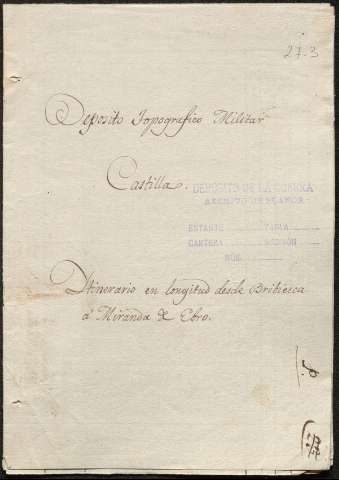 27-3
Deposito Topografico Militar
Castilla.
DEPÓSITO DE LA GUERRA
ARCHIVO DE PLANOS
ESTANTE TABLA
CARTERA SECCIÓN
NÚM.
Itinerario en longitud desde Bribiesca
á Miranda de Ebro.